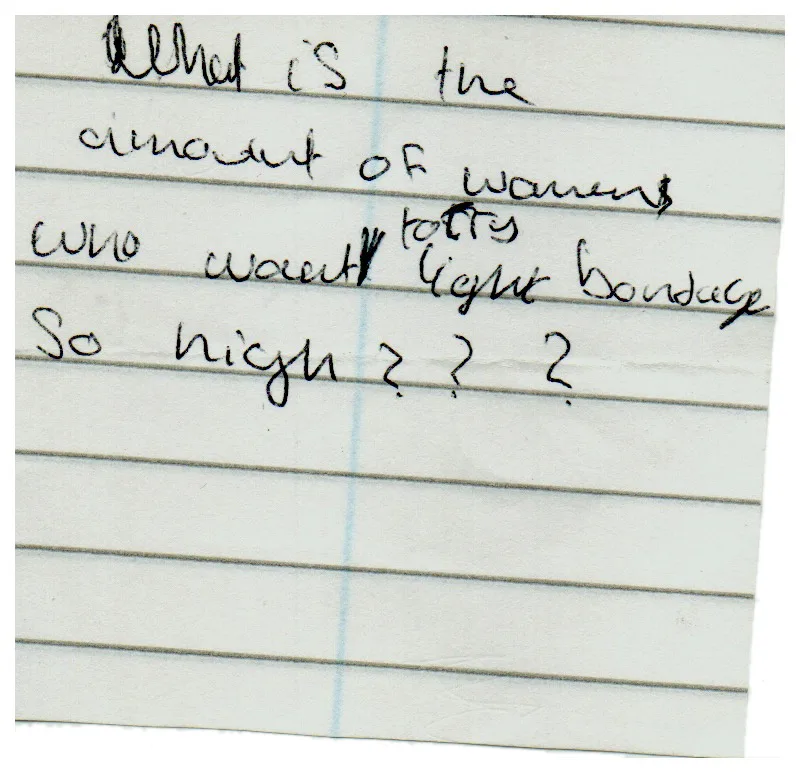 What is the
amount of women
who want light bondage
so high???